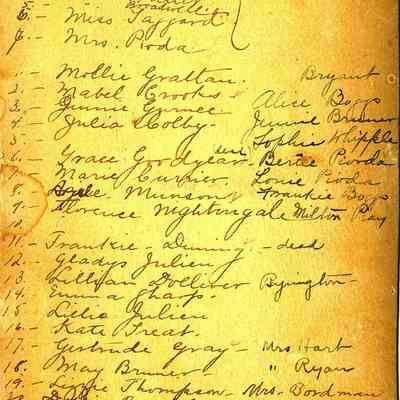 6.- Miss Taggard
7.- Mrs. Rioda
1.- Mollie Grattan. Bryant
2.- Mabel Crooks - Alice Boggs
3.- Jennie Bruner
4.- Julia Colby-
5.- Sophie Whipple
6.- Grace Goodyear - Rioda
7.- Marie Currier. Louie Rioda
8.- Munson Frankie Boggs
9.- Florence Nightingale Milton Ray
10.-
11.- Frankie - Deming - dead
12.- Gladys Julien
13.- Lillian Dolliver Byington-
14.- Emma Sharp.
15.- Lillie Julien
16.- Kate Treat.
17.- Gertrude Gray - Mrs Hart
18.- May Bruner " Ryan
19.- Lizzie Thompson - Mrs. Bordman